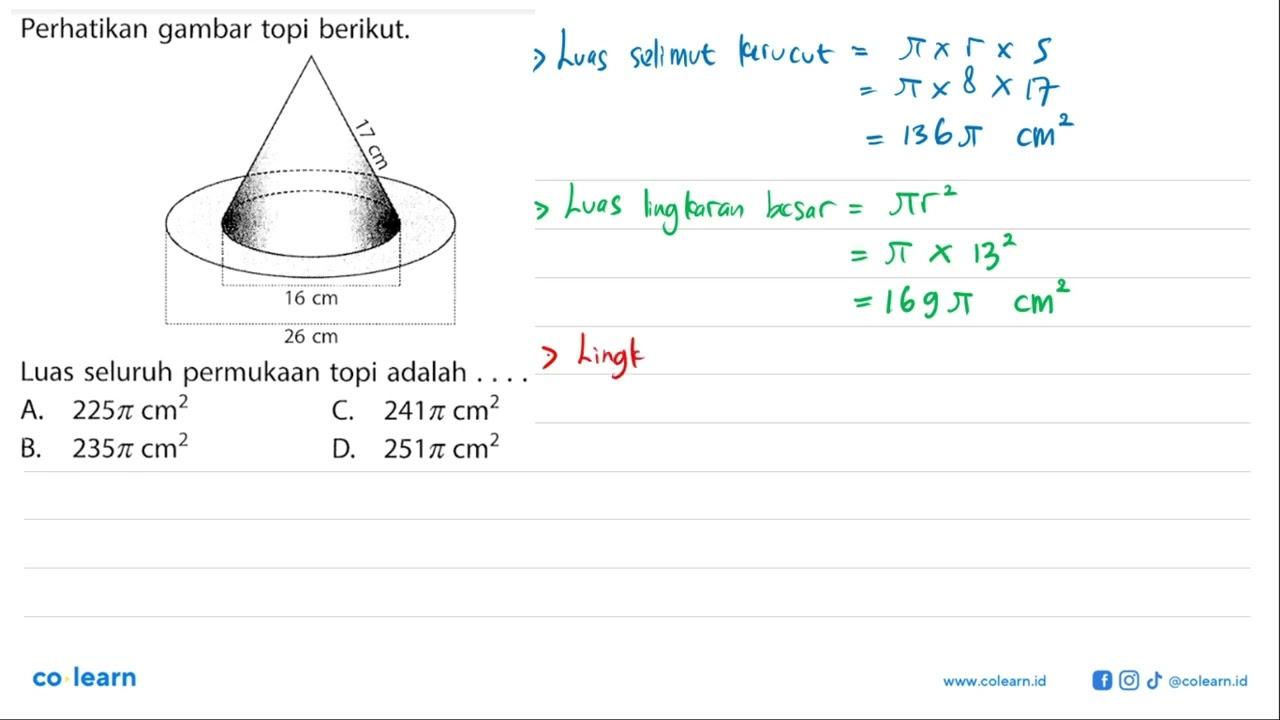 Perhatikan gambar topi berikut.
17 cm
16 cm
26 cm
Luas seluruh permukaan topi adalah . . . .
A. 225π cm²
C. 241π cm²
B. 235π cm²
D. 251π cm²
> Luas selimut kerucut = π × r × s
= π × 8 × 17
= 136π cm²
> Luas lingkaran besar = πr²
= π × 13²
= 169π cm²
> Lingk
co learn
www.colearn.id
@colearn.id